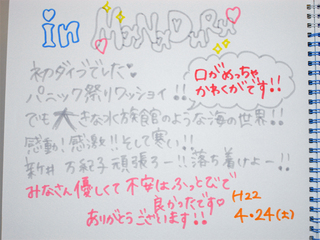 in MaNaDuRu
初ダイブでした
パニック祭りワッショイ!!
口がめっちゃ
かわくがです!!
でも大きな水族館のような海の世界!!
感動!感激!!そして寒い!!
新井 万紀子 頑張ろー!!落ち着けよー!!
みなさん優しくて 不安はふっとびで
良かったです
ありがとうございます!!
H22
4.24(土)